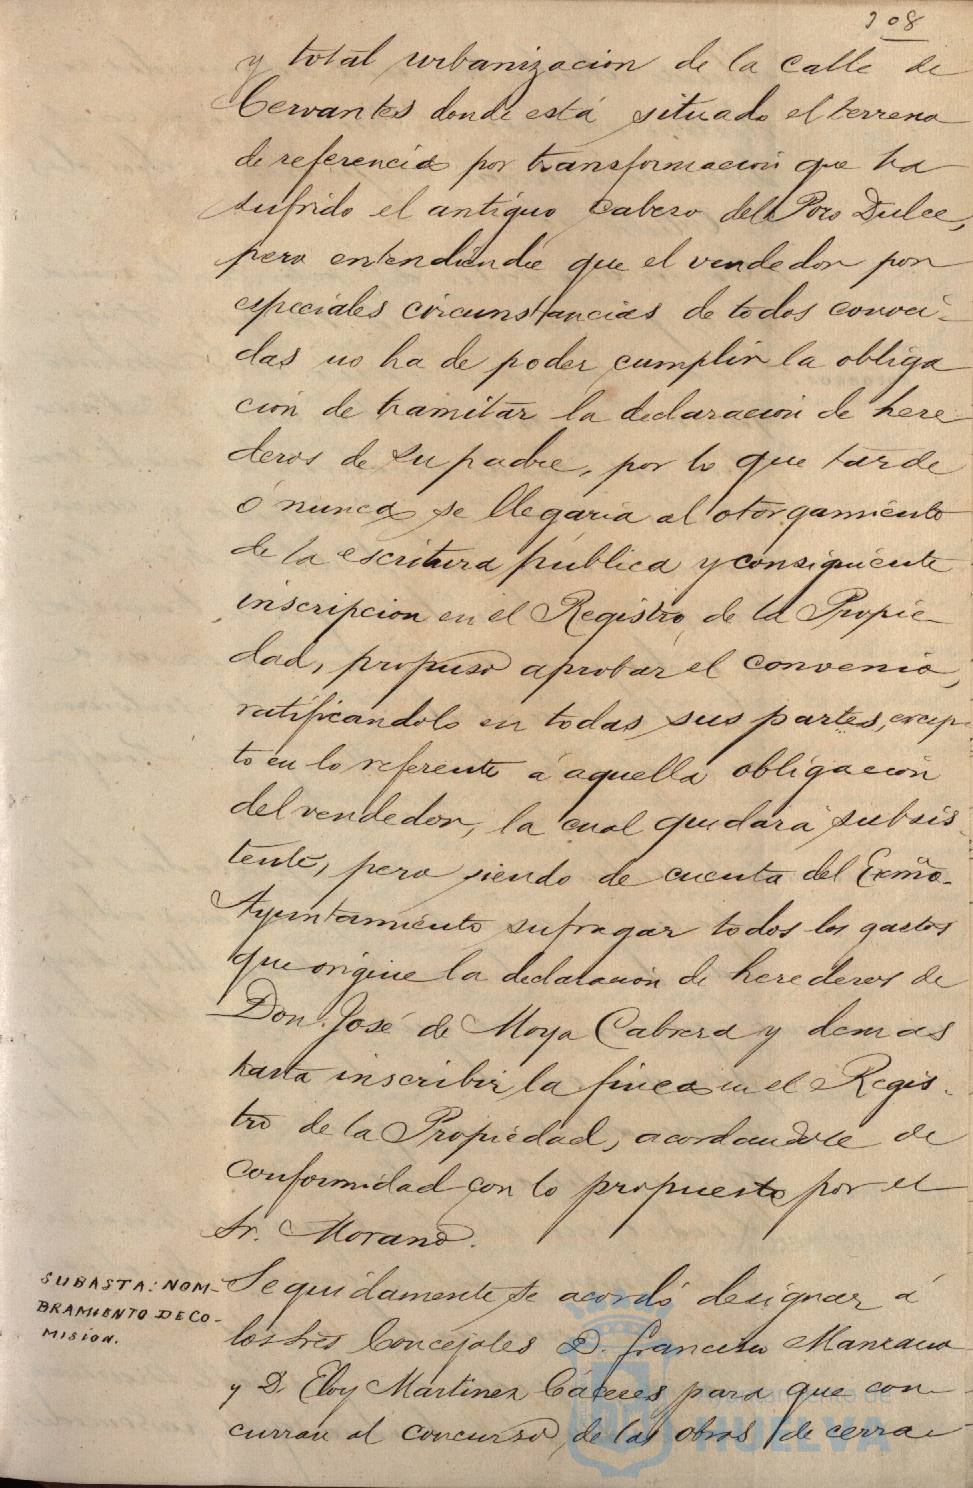 208
y total urbanizacion de la calle de
Cervantes donde está situado el terreno
de referencia por transformación que ha
sufrido el antiguo Cabezo del Pozo Dulce,
pero entendiendo que el vendedor por
especiales circunstancias de todos conoci-
das no ha de poder cumplir la obliga
ción de tramitar la declaración de here-
deros de su padre, por lo que tarde
ó nunca se llegaria al otorgamiento
de la escritura pública y consiguiente
inscripcion en el Registro de la Propie-
dad, propuso aprobar el convenio,
ratificandolo en todas sus partes, excep-
to en lo referente á aquella obligación
del vendedor, la cual quedará subsis-
tente, pero siendo de cuenta del Excmo.
Ayuntamiento sufragar todos los gastos
que origine la declaración de herederos de
Don José de Moya Cabrera y demas
hasta inscribir la finca en el Regis-
tro de la Propiedad, acordandose de
conformidad con lo propuesto por el
Sr. Morano.
SUBASTA: NOM-
BRAMIENTO DE CO-
MISION.
Seguidamente se acordó designar á
los Sres Concejales D. Francisco Manzano
y D. Eloy Martinez Cáceres para que con-
curran al concurso de las obras de cerra-
Ayuntamiento de
HUELVA